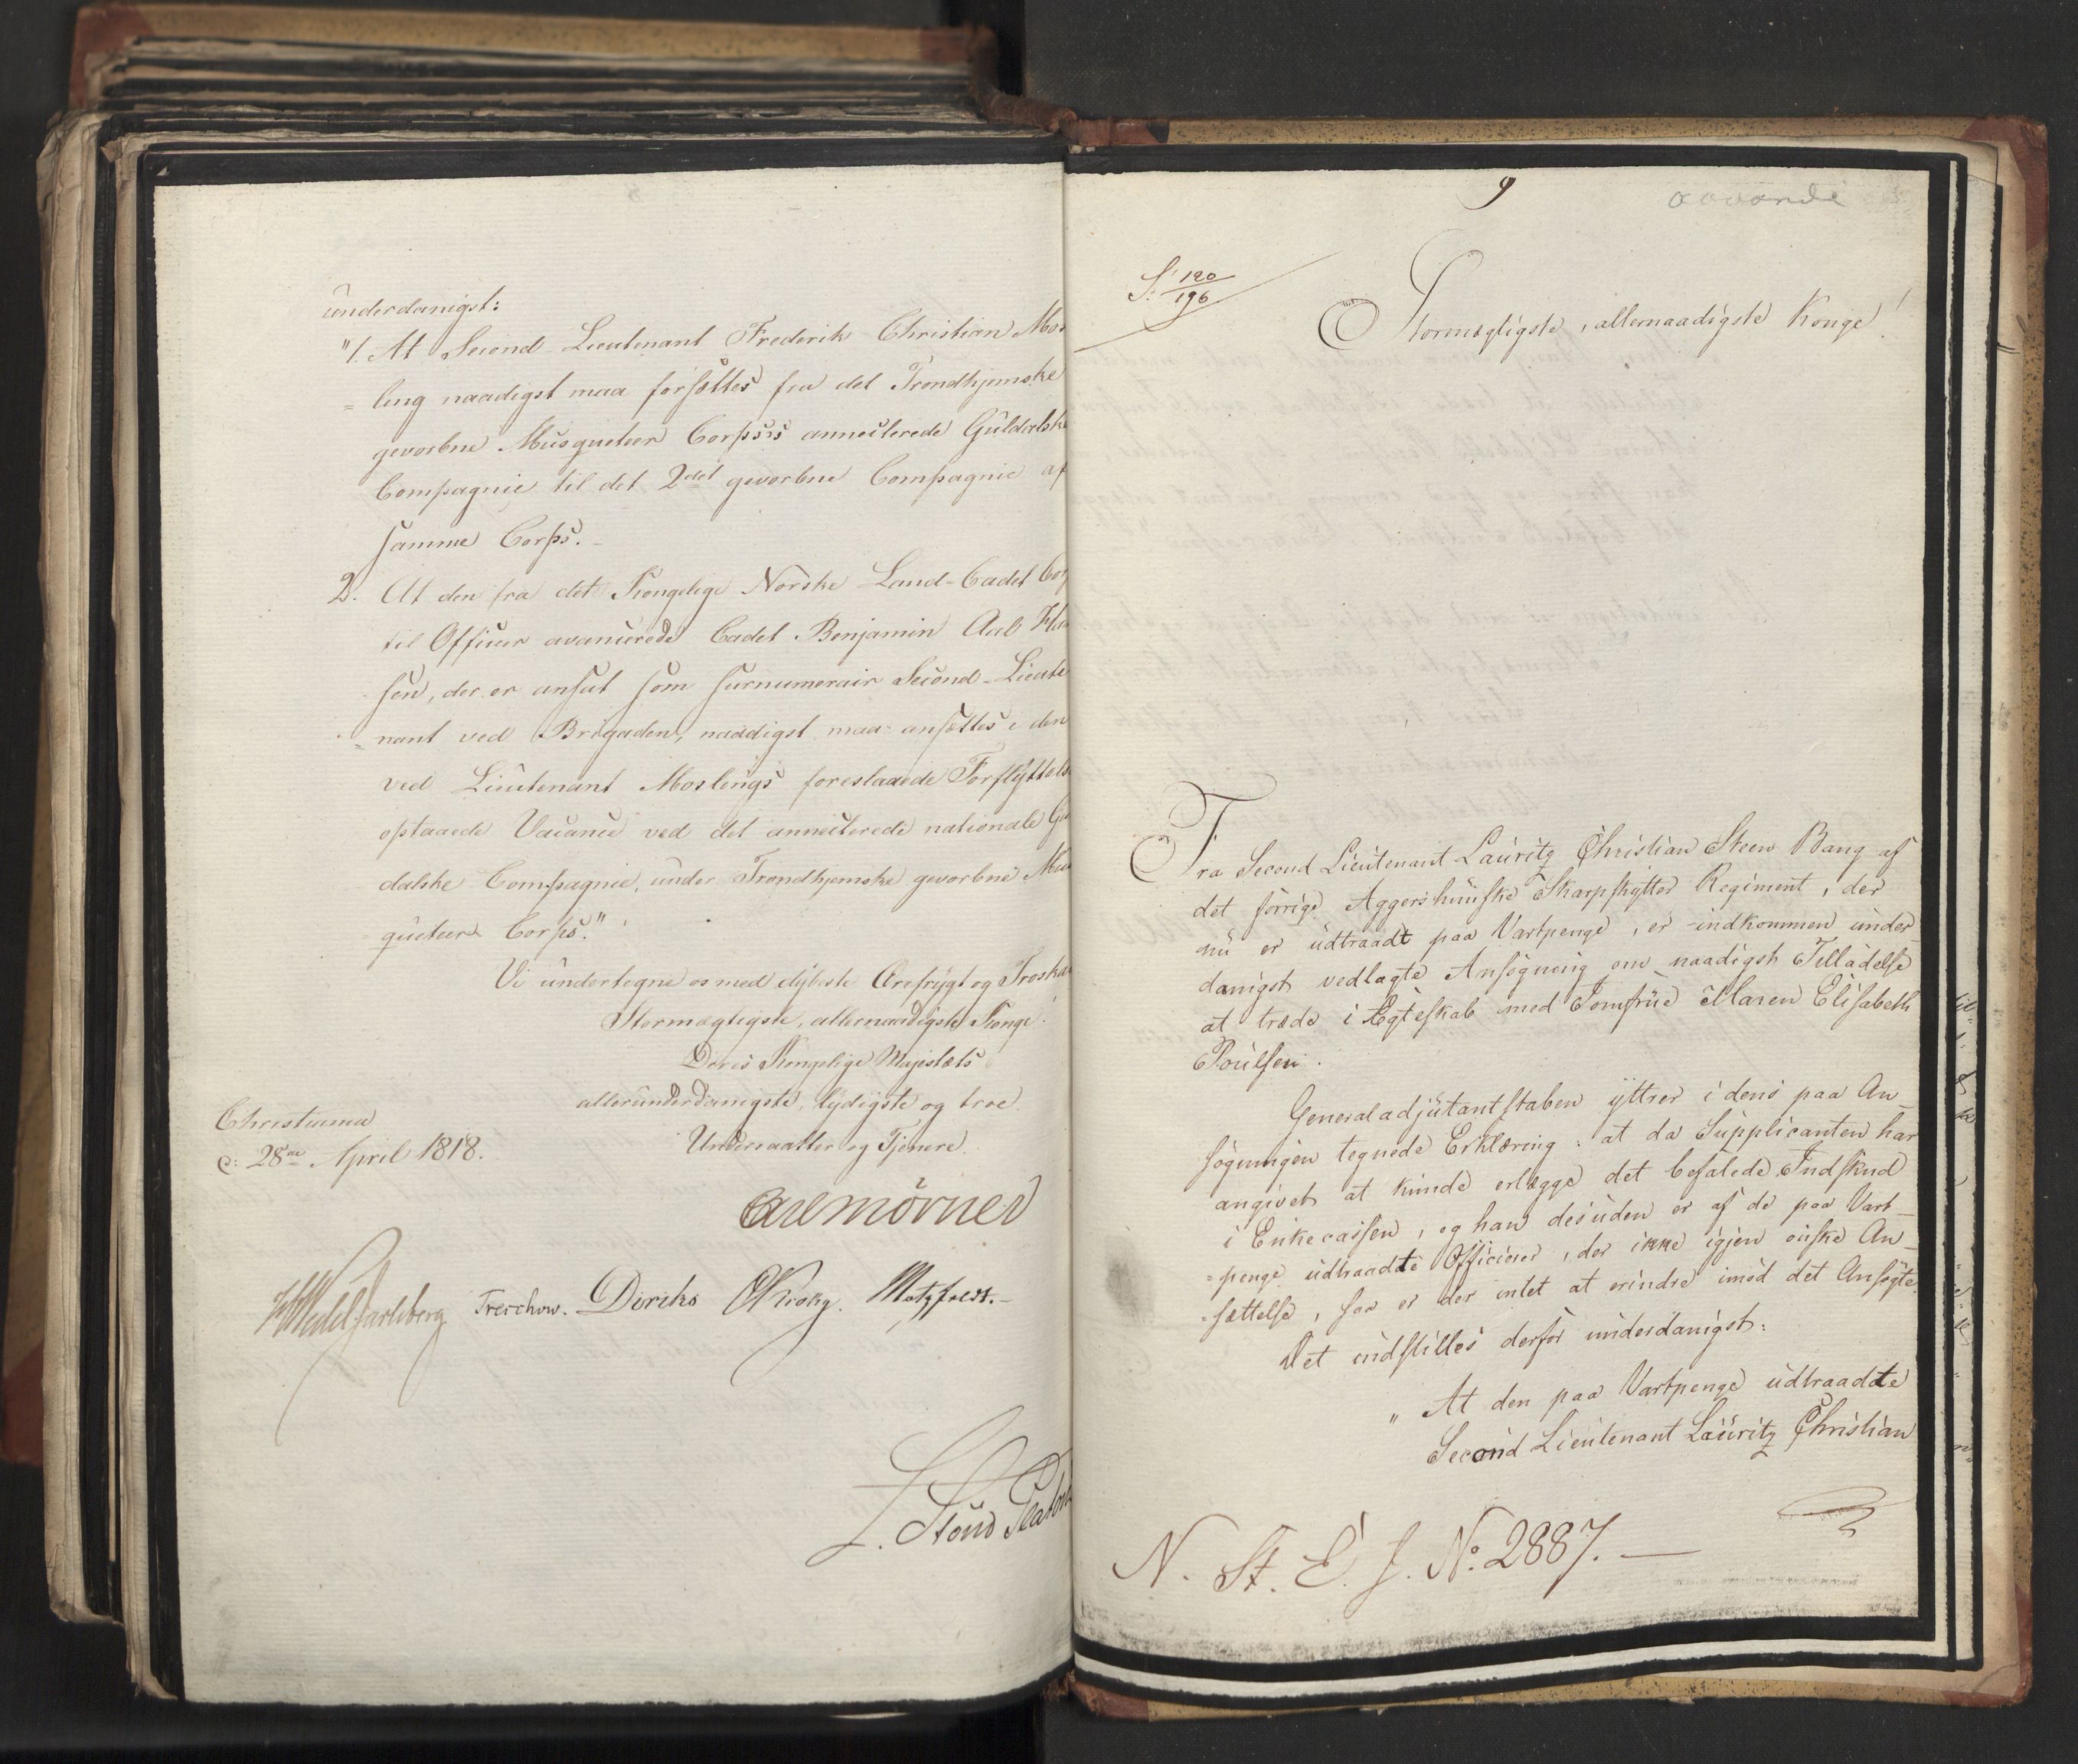 underdanigst:
"1. At Second-Lieutenant Frederik Christian Mos
= ling naadigst maa forsættes fra det Trondhjemske
gevorbne Musqueteer Corpses annecterede Guldalske
Compagnie til det 2det gevorbne Compagnie af
samme Corps.-
2. At den fra det Kongelige Norske Land-Cadet Corp
til Officer avancerede Cadet Benjamin Aal Han
sen, der er ansat som surnumerair Second-Lieute
= nant ved Brigaden, naadigst maa ansættes i den
ved Lieutenant Moslings foreslaaede Forflyttelse
opstaaede Vacance ved det annecterede nationale Gul
dalske Compagnie, under Trondhjemske gevorbne Mus
queteer Corps."
Vi undertegne os med dybeste Ærefrygt og Troskab
Stormægtigste, allernaadigste Konge!
Deres Kongelige Majestæts
allerunderdanigste, lydigste og troe
Christiania
Undersaatter og Tjenere.
d: 28de April 1818.
Carl Mörner
HWedel Jarlsberg Treschow. Diriks CKrohg. Motzfeldt.-
L. Stoud Platou
9
S: 120/196
Stormægtigste, allernaadigste Konge!
Fra Second Lieutenant Lauritz Christian Steen Bang af
det forrige Aggershuuske Skarpskytter Regiment, der
nu er udtraadt paa Vartpenge, er indkommen under
danigst vedlagte Ansøgning om naadigst Tilladelse
at træde i Egteskab med Jomfrue Maren Elisabeth
Poulsen.
Generaladjutantstaben yttrer i dens paa An_
søgningen tegnede Erklæring: at da Supplicanten har
angivet at kunde erlægge det befalede Indskud
i Enkecassen, og han desuden er af de paa Vart_
= penge udtraadte Officierer, der ikke igjen ønske An_
= sættelse, saa er der intet at erindre imod det Ansøgte.
Det indstilles derfor underdanigst:
" At den paa Vartpenge udtraadte
Second Lieutenant Lauritz Christian
N. St. E. J. No: 2887. —